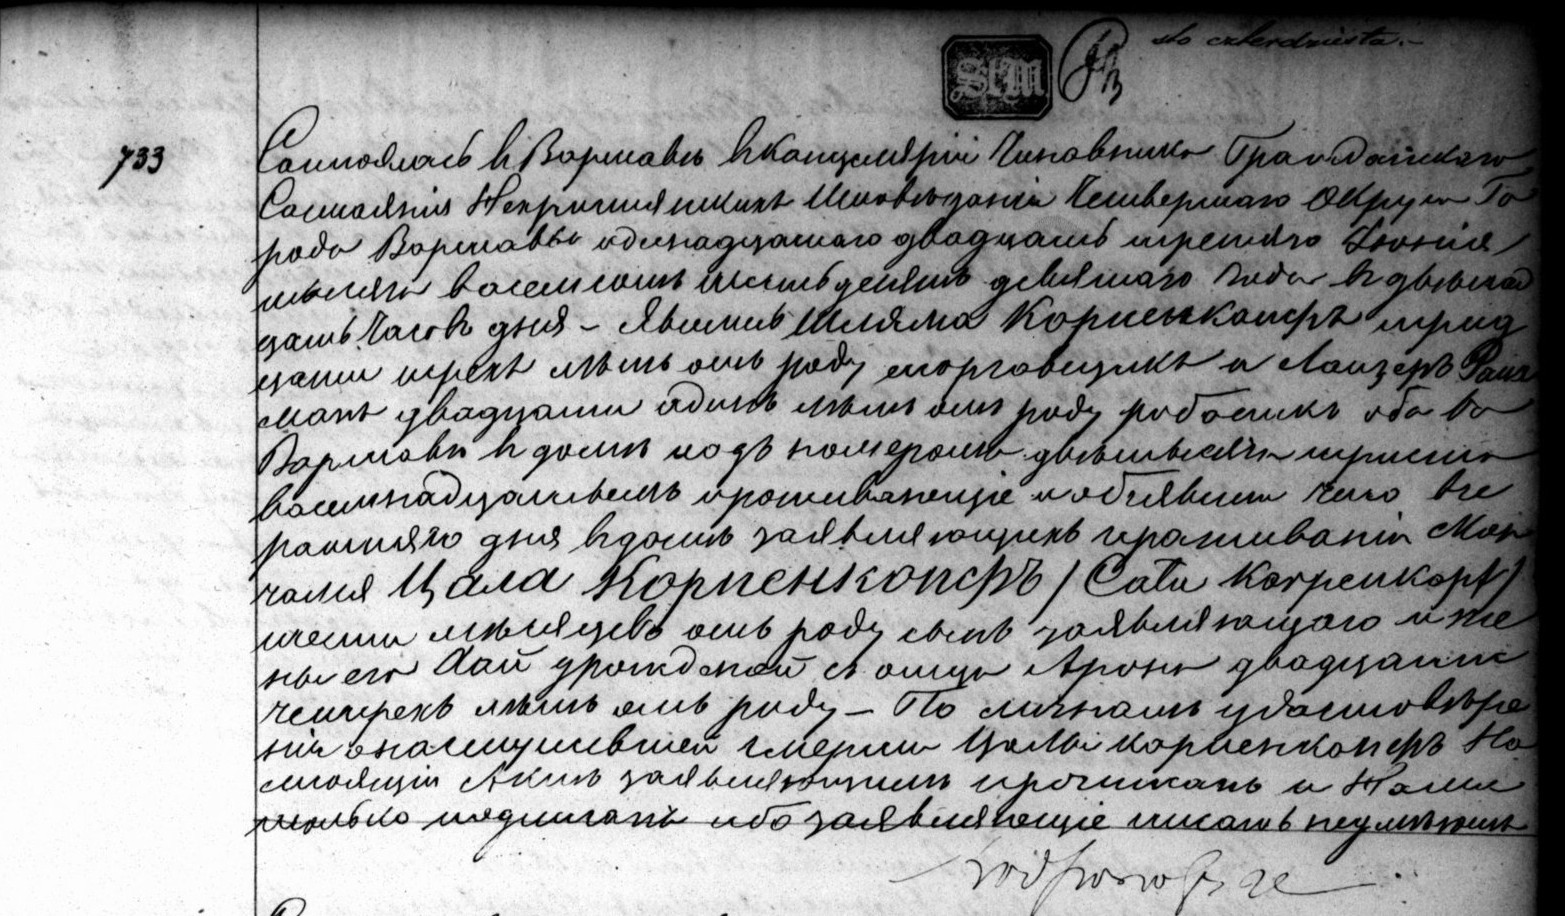 sto czterdziesta.-
StM
733
Состоялось въ Варшавѣ въ Канцеляріи Чиновника Гражданскаго
Состоянія Нехристіянскихъ Исповѣданій Четвертаго Округа Го
рода Варшавы одинадцатаго двадцать третяго Іюнія
тысяча восемсотъ шестьдесятъ девятаго года въ двѣнад
цать часовъ дня – явились Шляма Корпенкопфъ трид
цати трехъ лѣтъ отъ роду торговщикъ и Лаизеръ
манъ двадцати одинъ лѣтъ отъ роду работникъ оба въ
Варшавѣ въ домѣ подъ номеромъ двѣтысячи триста
восемнадцатьемъ проживающіе и объявили что вче
рашняго дня въ домѣ заявляющихъ проживанія
Цала Корпенкопфъ / Cala Korpenkopf /
шести мѣсяцевъ отъ роду сынъ заявляющаго и же
ны его Хаи урожденой съ отца Арона двадцати
четырехъ лѣтъ отъ роду – По личномъ удостовѣре
нія о наступившей смерти Цалы Корпенкопфъ На
стоящій Актъ заявляющимъ прочитанъ и Нами
только подписанъ ибо заявляющіе писать неумѣютъ